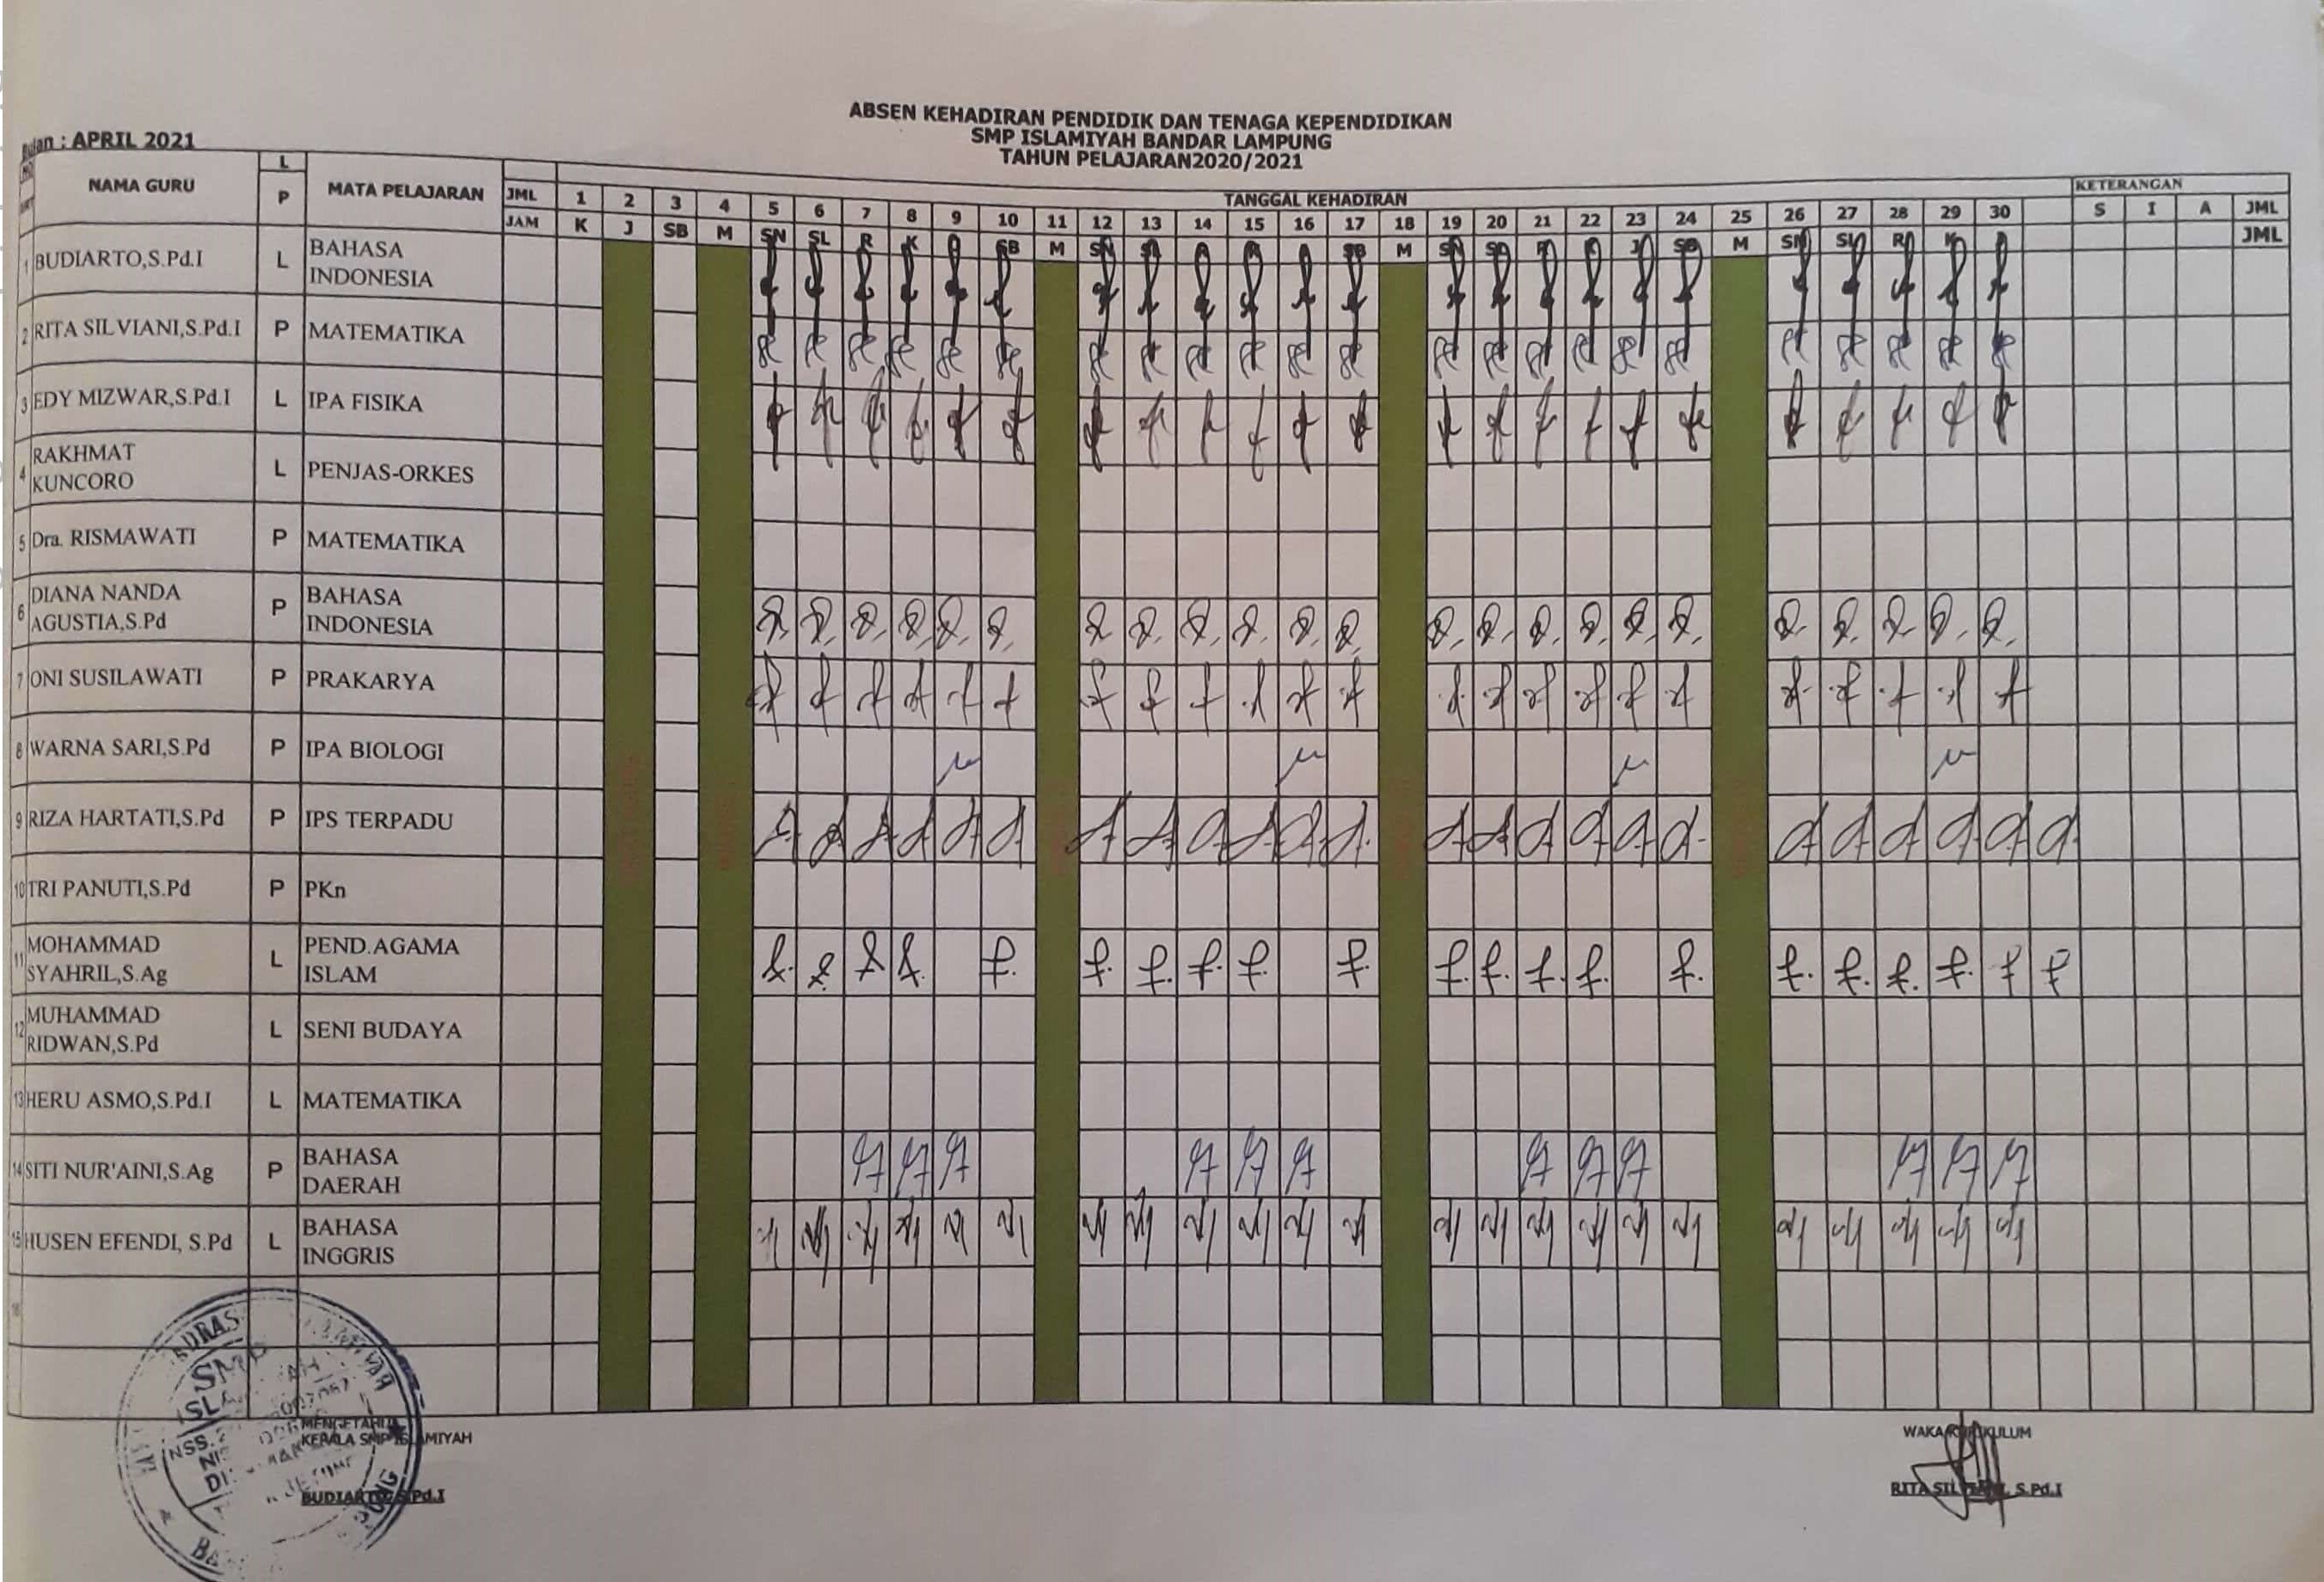 ABSEN KEHADIRAN PENDIDIK DAN TENAGA KEPENDIDIKAN
SMP ISLAMIYAH BANDAR LAMPUNG
TAHUN PELAJARAN2020/2021
: APRIL 2021
NAMA GURU L MATA PELAJARAN JML TANGGAL KEHADIRAN KETERANGAN
P JAM 1 2 3 4 5 6 7 8 9 10 11 12 13 14 15 16 17 18 19 20 21 22 23 24 25 26 27 28 29 30 S I A JML
K J SB M SN SL R K SB M M M JML
1 BUDIARTO,S.Pd.I L BAHASA
INDONESIA
2 RITA SILVIANI,S.Pd.I P MATEMATIKA
3 EDY MIZWAR,S.Pd.I L IPA FISIKA
4 RAKHMAT
KUNCORO L PENJAS-ORKES
5 Dra. RISMAWATI P MATEMATIKA
6 DIANA NANDA
AGUSTIA,S.Pd P BAHASA
INDONESIA
7 ONI SUSILAWATI P PRAKARYA
8 WARNA SARI,S.Pd P IPA BIOLOGI
9 RIZA HARTATI,S.Pd P IPS TERPADU
10 TRI PANUTI,S.Pd P PKn
11 MOHAMMAD
SYAHRIL,S.Ag L PEND.AGAMA
ISLAM
12 MUHAMMAD
RIDWAN,S.Pd L SENI BUDAYA
13 HERU ASMO,S.Pd.I L MATEMATIKA
14 SITI NUR'AINI,S.Ag P BAHASA
DAERAH
15 HUSEN EFENDI, S.Pd L BAHASA
INGGRIS
16
SMP
NSS.
MENGETAHUI
KEPALA SMP ISLAMIYAH
BUDIARTO, S.Pd.I
WAKA KURIKULUM
RITA SILVIANI, S.Pd.I